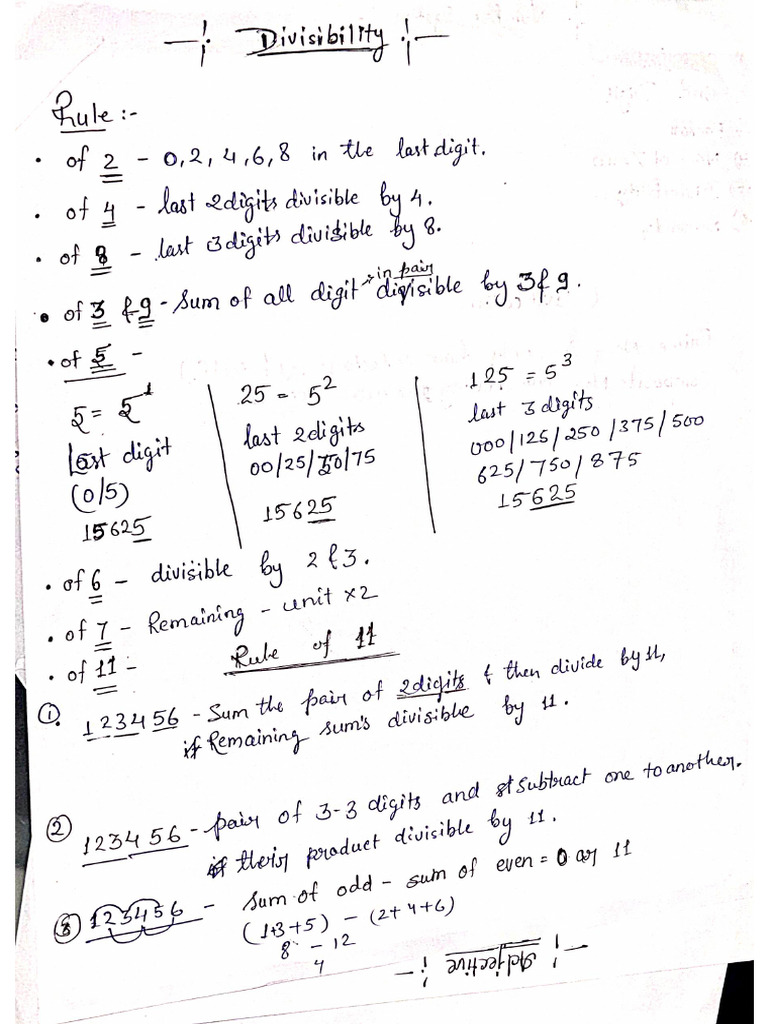 Divisibility
Rule :-
• of 2 - 0, 2, 4, 6, 8 in the last digit.
• of 4 - last 2 digits divisible by 4.
• of 8 - last 3 digits divisible by 8.
• of 3 & 9 - Sum of all digit in pair divisible by 3 & 9.
• of 5 -
5 = 5¹
Last digit
(0/5)
15625
25 = 5²
last 2 digits
00/25/50/75
15625
125 = 5³
last 3 digits
000/125/250/375/500
625/750/875
15625
• of 6 - divisible by 2 & 3.
• of 7 - Remaining - unit ×2
• of 11 - Rule of 11
①. 123456 - Sum the pair of 2 digits & then divide by 11,
if Remaining sum's divisible by 11.
② 123456 - pair of 3-3 digits and subtract one to another.
if their product divisible by 11.
③ 123456 - Sum of odd - sum of even = 0 or 11
(1+3+5) - (2+4+6)
8 - 12
4
Adjective